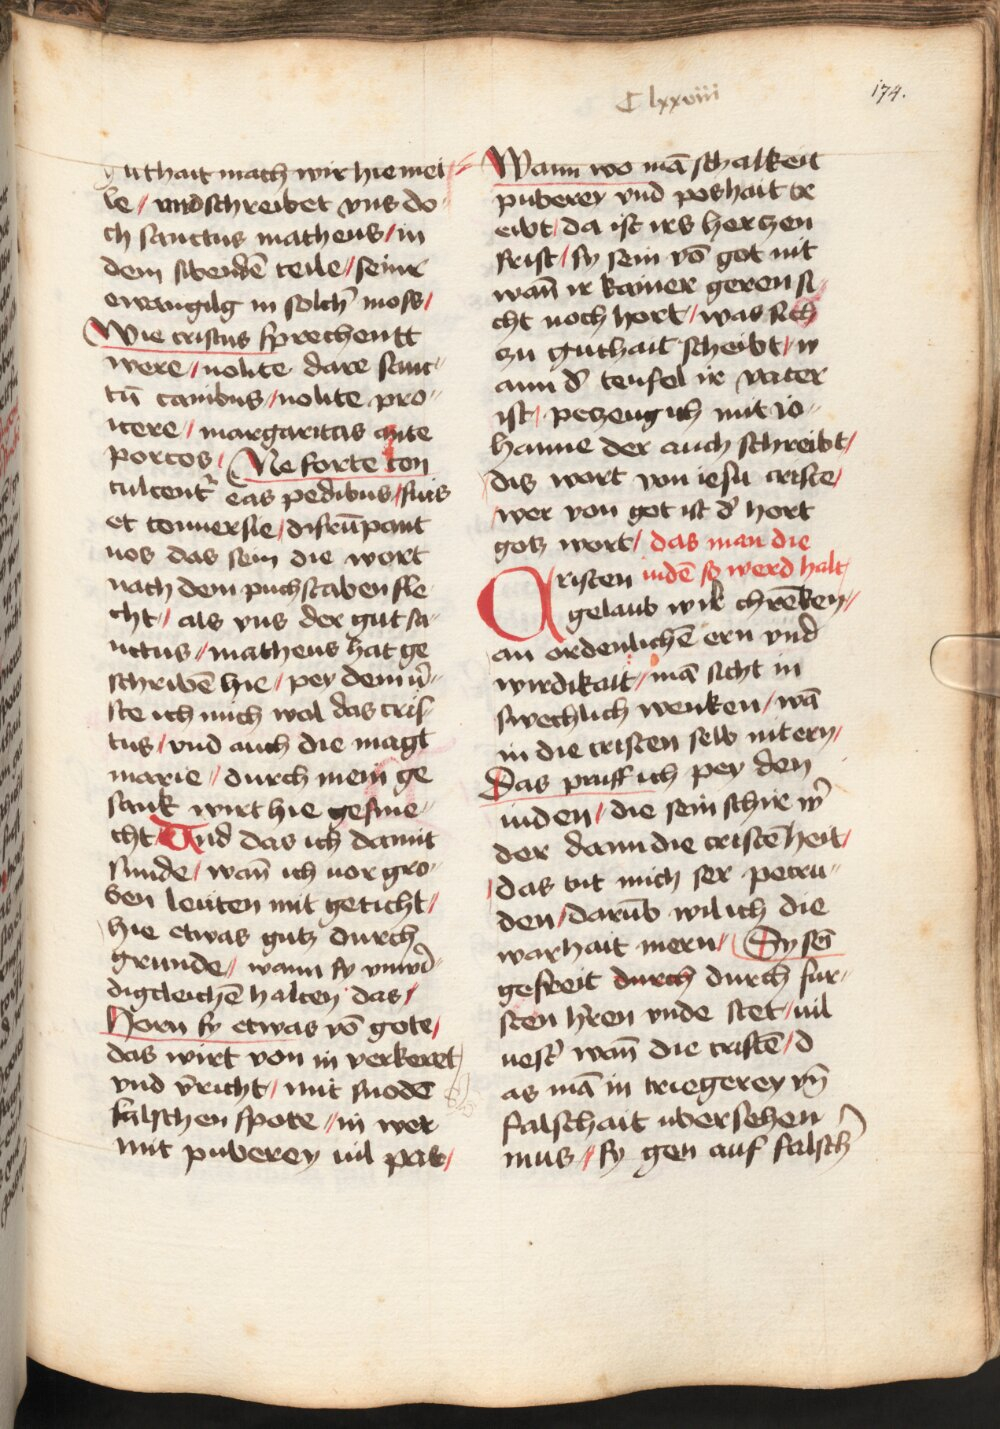 C lxxviii
174.
guthait mach wir hie mei
le // und schreibet vns do
ch sanctus matheus / in
dem sibendē teile // seinr
ewangilg in solch' moss /
Wie cristus sprechentt
were / nolite dare sanc
tū canibus / nolite pro
icere / margaritas ante
porcos / Ne forte con
culcent' eas pedibus / suis
et conuersie / disrūpant
uos das sein die wort
nach dem puchstaben sle
cht / als vns der gut sa
nctus // matheus hat ge
schribē hie / pey dem v̄
ste ich mich wol das cris
tus / vnd auch die magt
marie // durch mein ge
sank wirt hie gesme
cht Und das ich damit
sunde / wañ ich uor gro
ben leuten mit geticht /
hie etwas gutz durch
grunde // wann sy vnwi
digcleichē halten das /
Horn sy etwas vō gote /
das wirt von in verkeret /
vnd v̄richt / mit snodē
falschen spote // in wer
mit puberey uil pak /
Wann wo mā schalkeit
puberey vnd poshait tr
eibt / da ist irs hertzen
frist / sy sein vō got nit
wañ ir kainer geren si
cht noch hort / was sich
zu guthait scheibt / w
ann d' teufel ir vater
ist / petzeug ich mit io
hanne der auch schreibt /
dis wort von iesu criste /
wer von got ist d' hort
gotz wort / das man die
Cristen indē so werd halt /
gelaub wil chrēken //
an ordenlichē ern vnd
wirdikait / mā sicht in
swechlich wenken / wā
in die cristen selb nit ern /
Das pruff ich pey den
iuden / die sein schir w'
der dann die cristēheit /
das tut mich ser petru
den / darūb wil ich die
warhait mern // Sy sē
gefreit durch durch fur
sten h'ren vnde stet / uil
uest' wañ die cristē / d
as mā in triegerey vn̄
falschait ubersehen
mus // sy gen auf falsch'